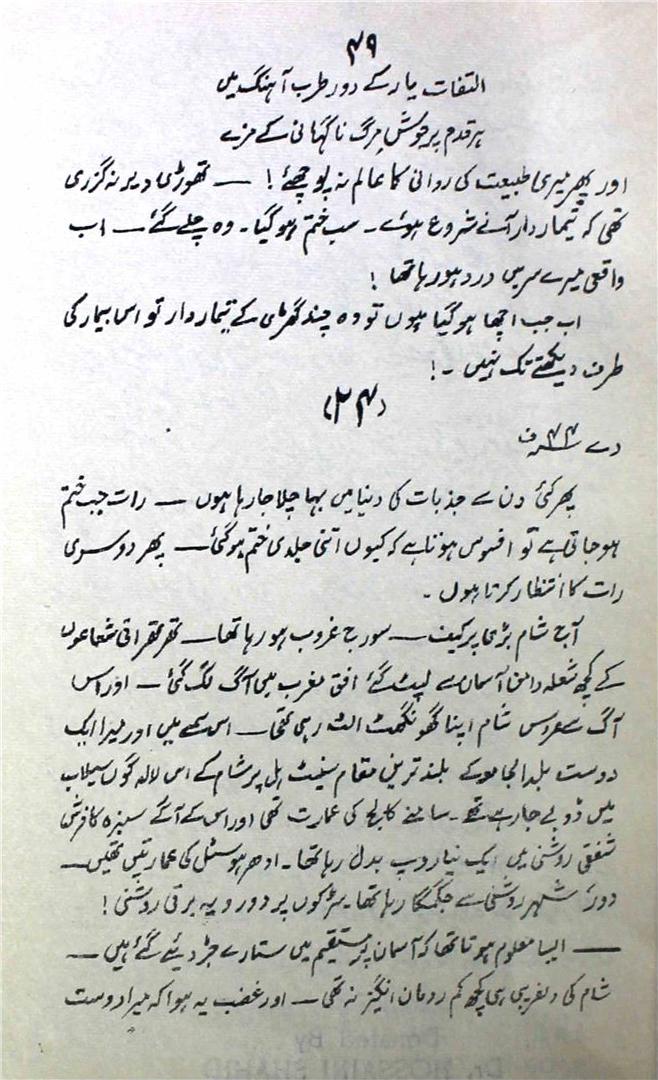 ۴۹
التفات یار کے دور طرب آہنگ میں
ہر قدم پر جوش مرگ ناگہانی کے مزے
اور پھر میری طبیعت کی روانی کا عالم نہ پوچھئے! — تھوڑی دیر نہ گزری
تھی کہ تیماردار آنے شروع ہوئے۔ سب ختم ہو گیا۔ وہ چلے گئے — اب
واقعی میرے سر میں درد ہو رہا تھا!
اب جب اچھا ہو گیا ہوں تو وہ چند گھڑی کے تیماردار تو اس بیمار کی
طرف دیکھتے تک نہیں ۔!
(۲۴)
دے
پھر کئی دن سے جذبات کی دنیا میں بہا چلا جا رہا ہوں — رات جب ختم
ہو جاتی ہے تو افسوس ہوتا ہے کہ کیوں اتنی جلدی ختم ہو گئی — پھر دوسری
رات کا انتظار کرتا ہوں۔
آج شام بڑی پرکیف — سورج غروب ہو رہا تھا — تھرتھراتی شعاعوں
کے کچھ شعلہ دامن آسمان سے لپٹ گئے افق مغرب میں آگ لگ گئی — اور اس
آگ سے عروس شام اپنا گھونگھٹ الٹ رہی تھی — اس سمے میں اور میرا ایک
دوست بلدالجامعہ کے بلند ترین مقام سنیٹ ہل پر شام کے اس لالہ گوں سیلاب
میں ڈوبے جا رہے تھے۔ سامنے کالج کی عمارت تھی اور اس کے آگے سبزہ کا فرش
شفقی روشنی میں ایک نیا روپ بدل رہا تھا۔ ادھر ہوسٹل کی عمارتیں تھیں —
دور، شہر روشنی سے جگمگا رہا تھا۔ سڑکوں پر دور دیہ برقی روشنی!
— ایسا معلوم ہوتا تھا کہ آسمان پر مستقیم میں ستارے جڑ دیئے گئے ہیں —
شام کی دلفریبی ہی کچھ کم رومان انگیز نہ تھی — اور غضب یہ ہوا کہ میرا دوست